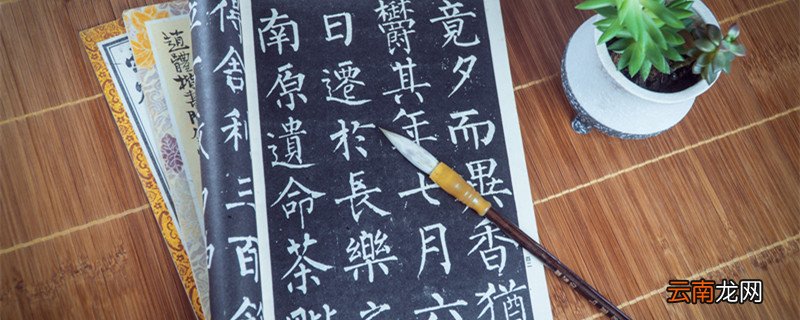 竟夕而異香猶
鬱其年七月六
日遷於長樂
南原遺命茶
得舍利三百
云南龙网